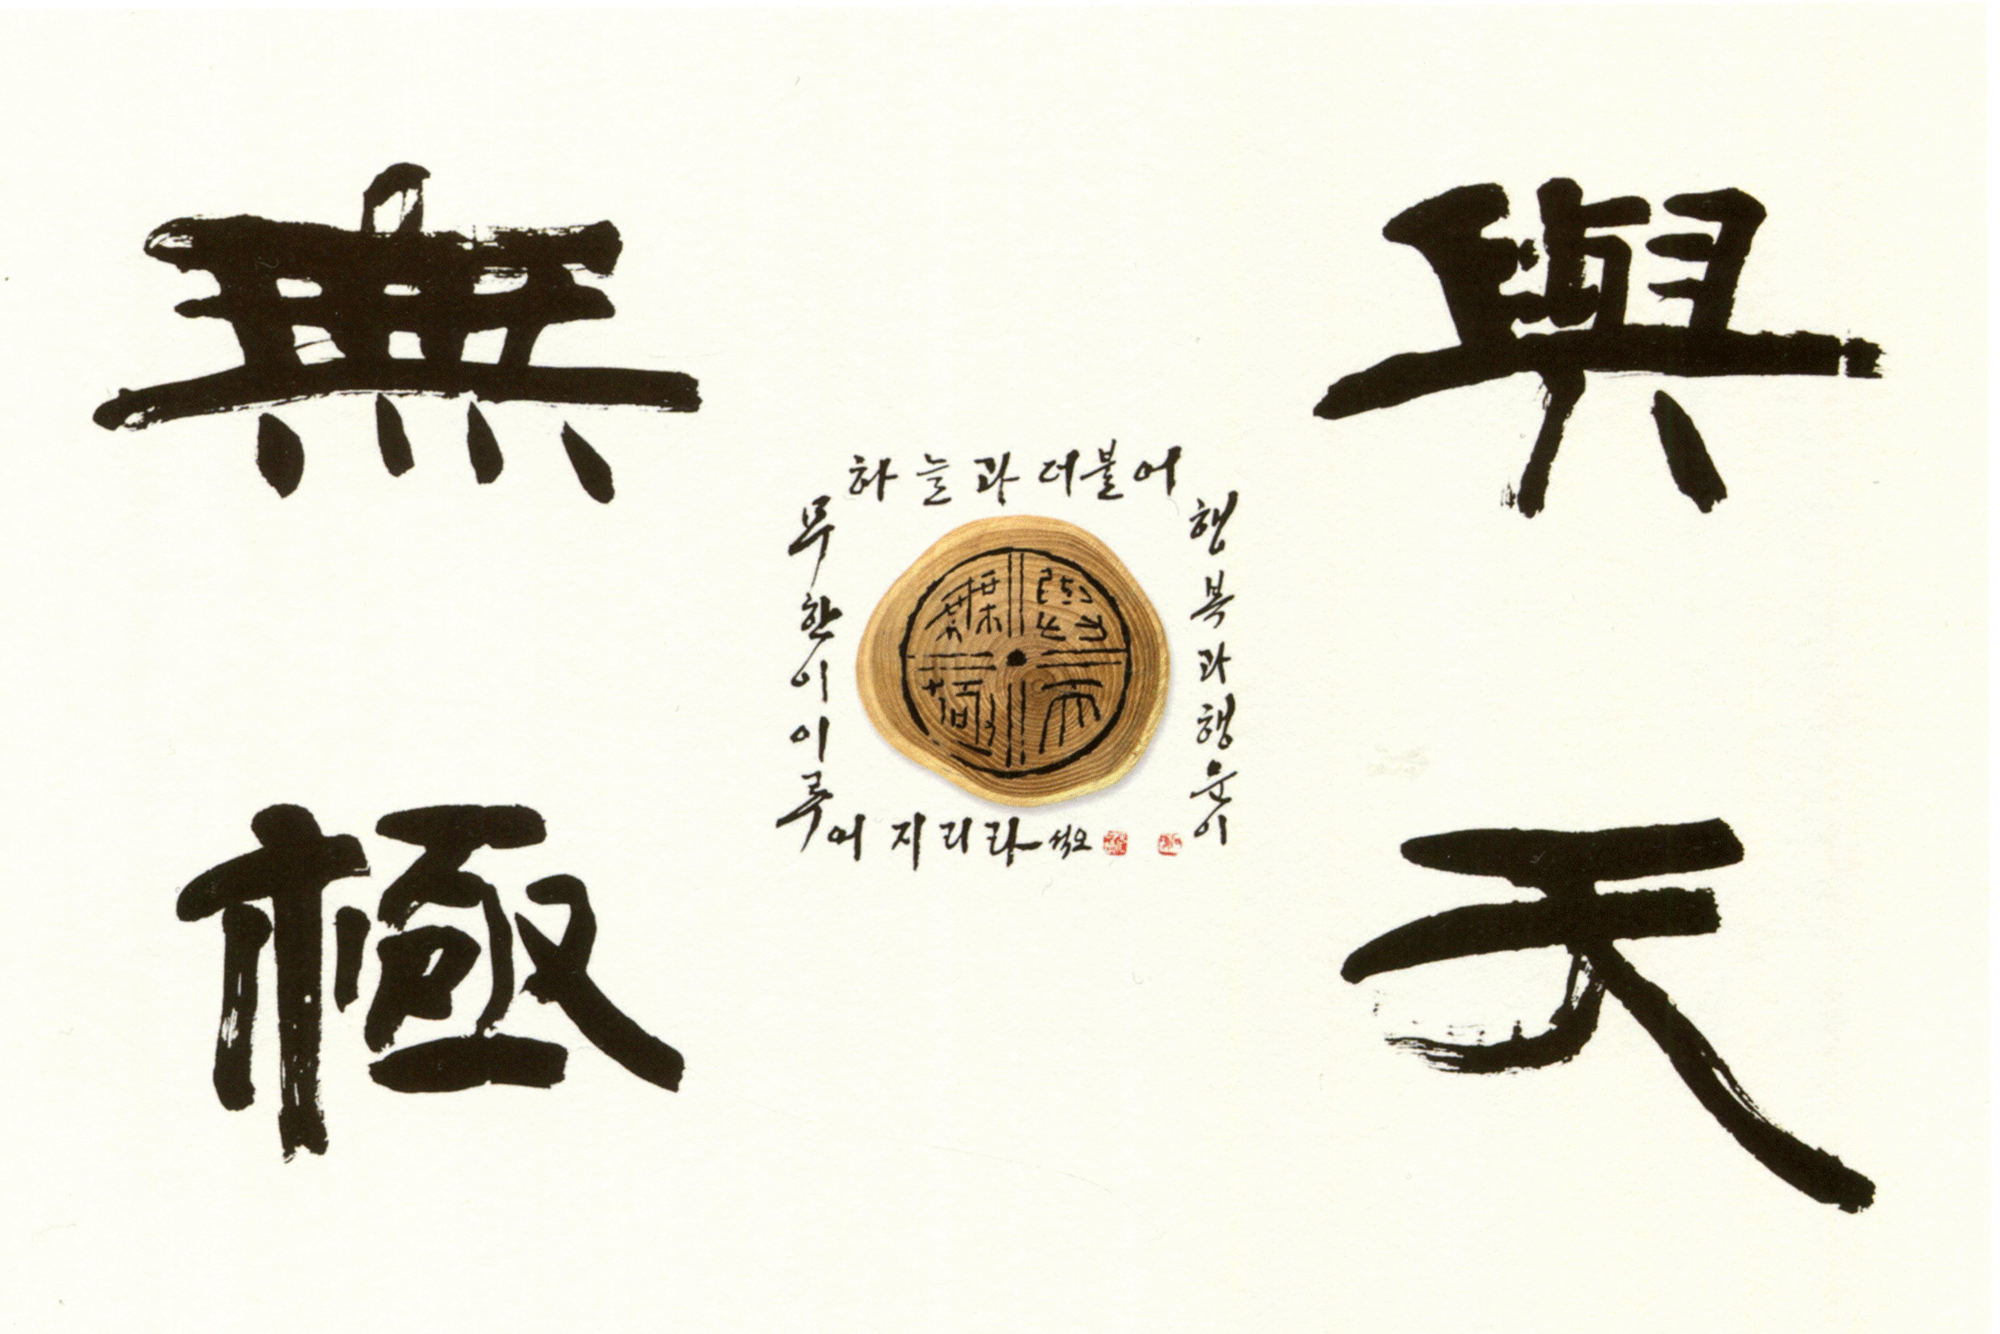 與天
無極
하늘과더불어
행복과행운이
무한이이루
어지리라 석오
與天
無極